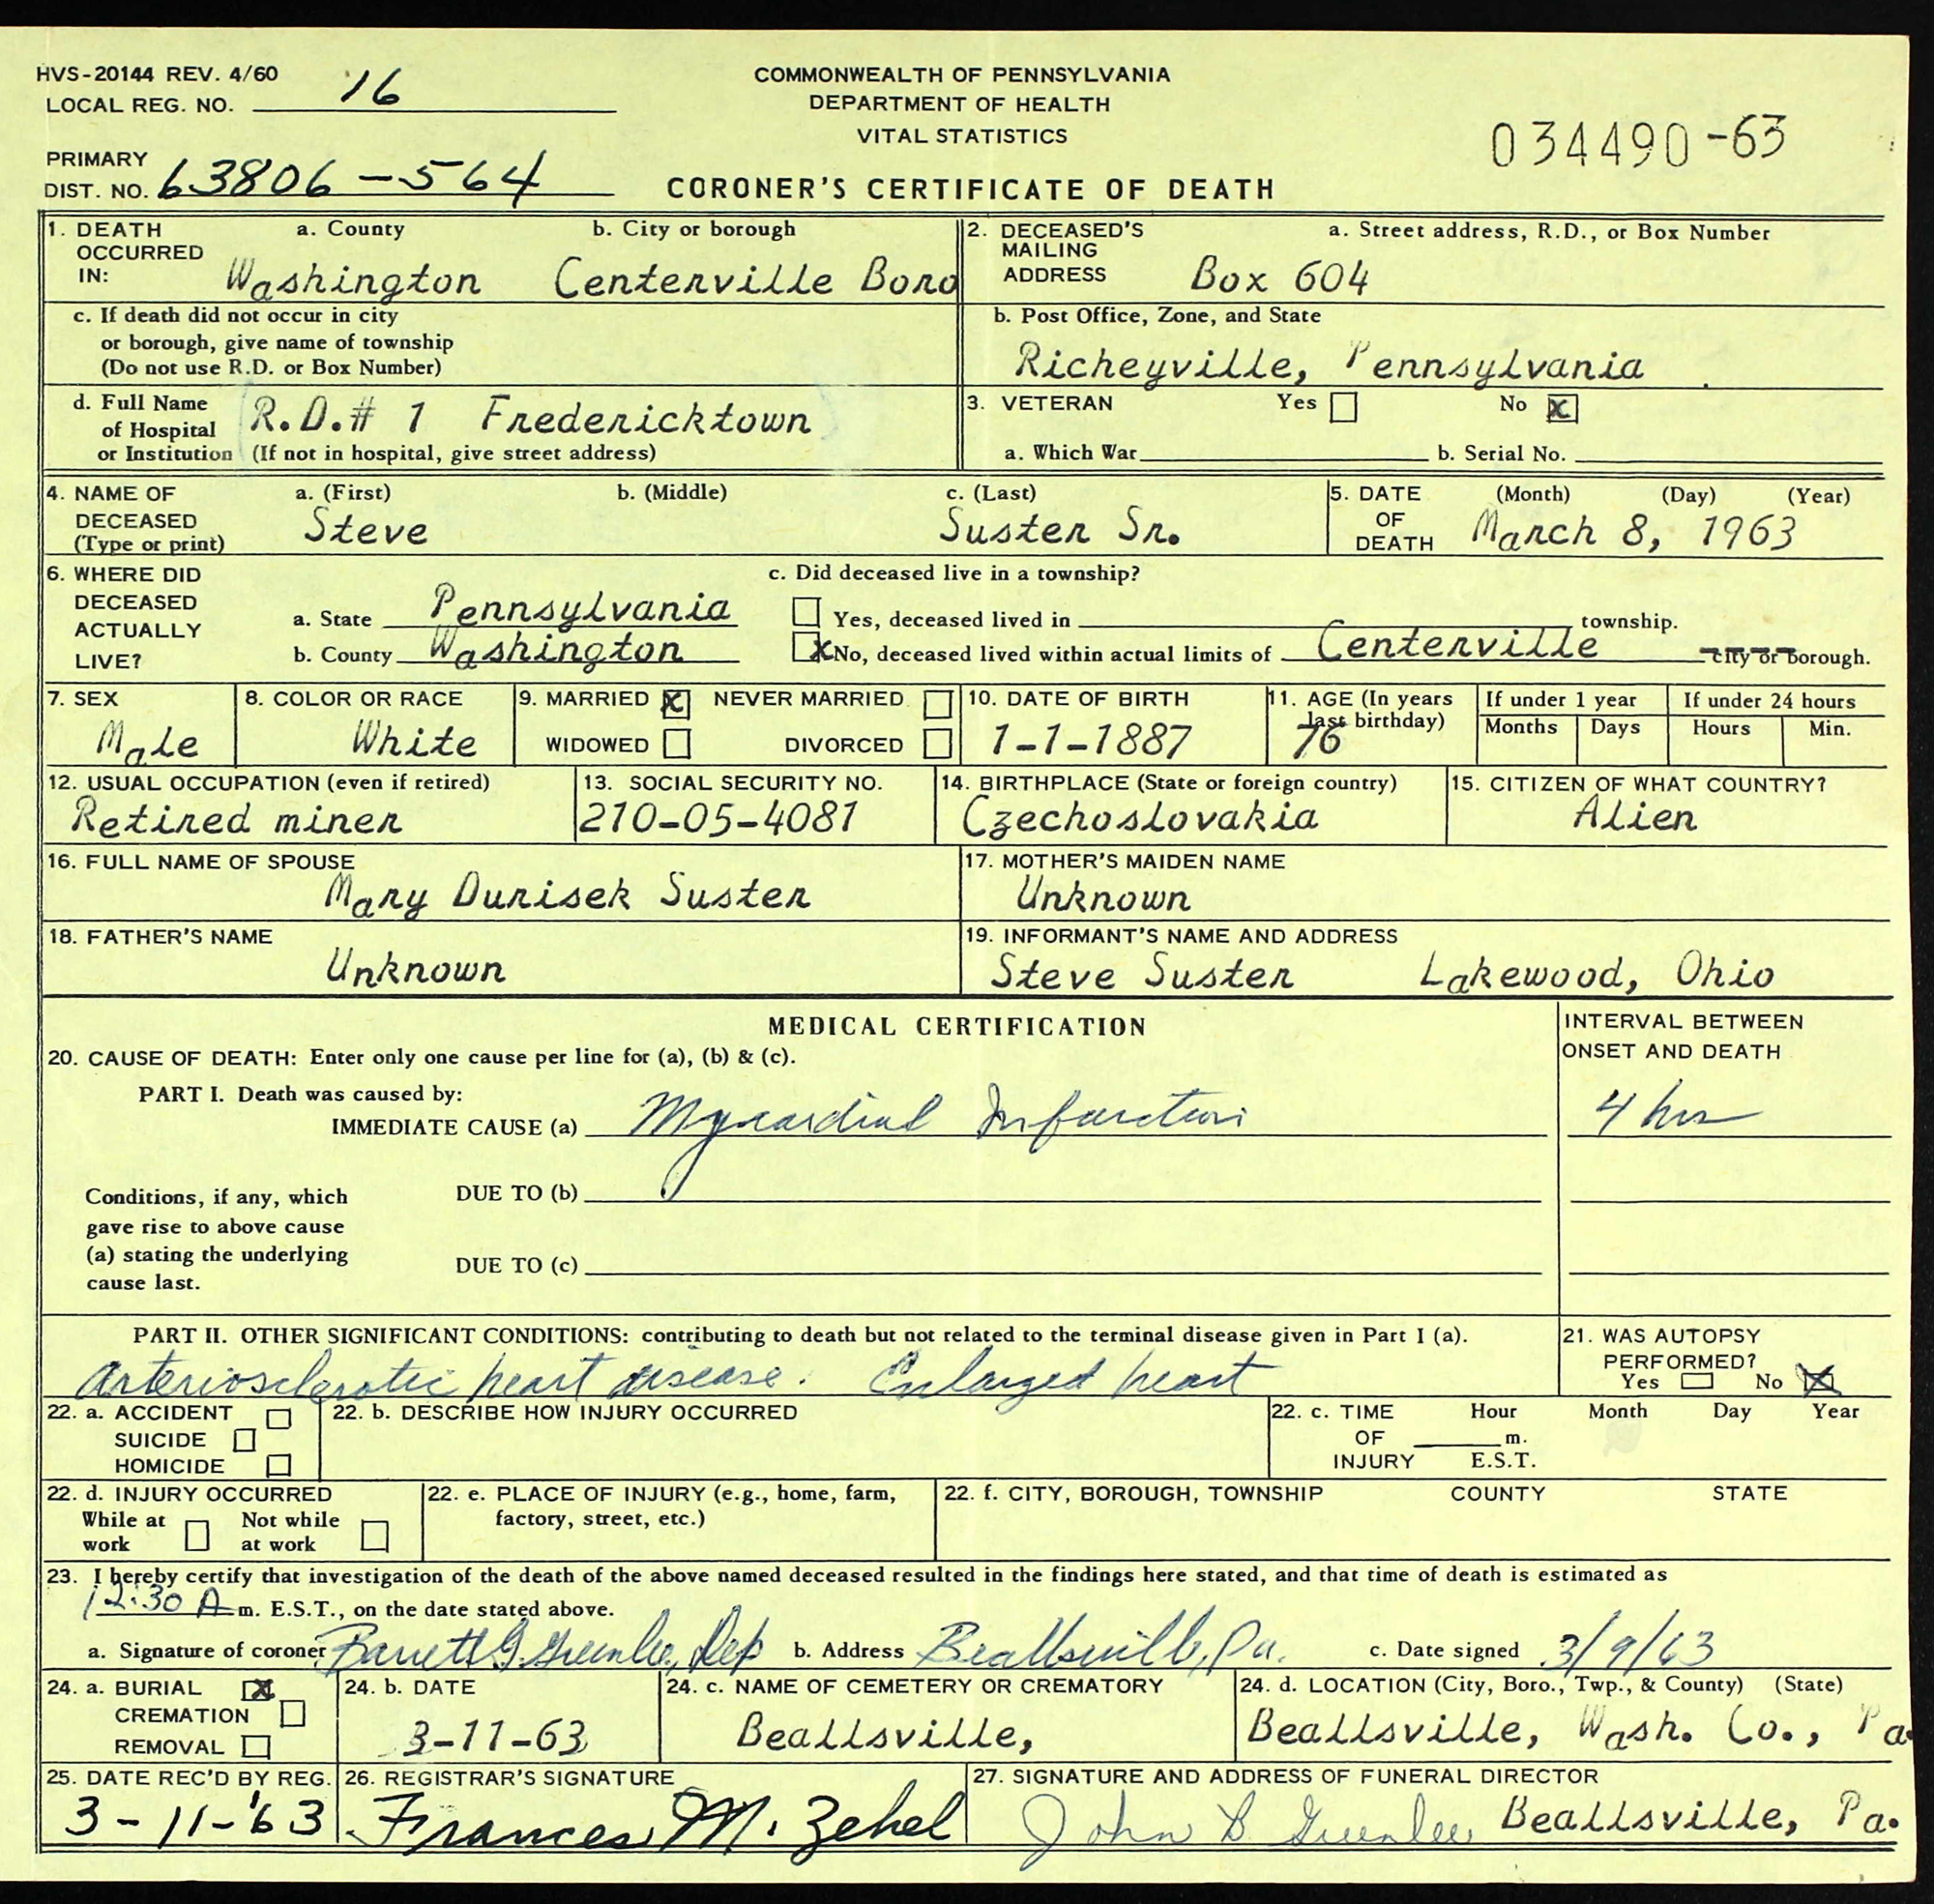 HVS-20144 REV. 4/60
LOCAL REG. NO. 16
COMMONWEALTH OF PENNSYLVANIA
DEPARTMENT OF HEALTH
VITAL STATISTICS
034490-63
PRIMARY
DIST. NO. 63806-564
CORONER'S CERTIFICATE OF DEATH
1. DEATH OCCURRED IN: a. County b. City or borough
Washington Centerville Boro
2. DECEASED'S MAILING ADDRESS a. Street address, R.D., or Box Number
Box 604
c. If death did not occur in city
or borough, give name of township
(Do not use R.D. or Box Number)
b. Post Office, Zone, and State
Richeyville, Pennsylvania
d. Full Name
of Hospital
or Institution
R.D.# 1 Fredericktown
(If not in hospital, give street address)
3. VETERAN Yes No X
a. Which War b. Serial No.
4. NAME OF DECEASED (Type or print) a. (First) b. (Middle) c. (Last)
Steve Suster Sr.
5. DATE OF DEATH (Month) (Day) (Year)
March 8, 1963
6. WHERE DID DECEASED ACTUALLY LIVE?
a. State Pennsylvania
b. County Washington
c. Did deceased live in a township?
Yes, deceased lived in township.
X No, deceased lived within actual limits of Centerville city or borough.
7. SEX
Male
8. COLOR OR RACE
White
9. MARRIED X NEVER MARRIED
WIDOWED DIVORCED
10. DATE OF BIRTH
1-1-1887
11. AGE (In years last birthday)
76
If under 1 year
Months Days
If under 24 hours
Hours Min.
12. USUAL OCCUPATION (even if retired)
Retired miner
13. SOCIAL SECURITY NO.
210-05-4081
14. BIRTHPLACE (State or foreign country)
Czechoslovakia
15. CITIZEN OF WHAT COUNTRY?
Alien
16. FULL NAME OF SPOUSE
Mary Durisek Suster
17. MOTHER'S MAIDEN NAME
Unknown
18. FATHER'S NAME
Unknown
19. INFORMANT'S NAME AND ADDRESS
Steve Suster Lakewood, Ohio
MEDICAL CERTIFICATION
INTERVAL BETWEEN
ONSET AND DEATH
20. CAUSE OF DEATH: Enter only one cause per line for (a), (b) & (c).
PART I. Death was caused by:
IMMEDIATE CAUSE (a) Myocardial Infarction 4 hrs
Conditions, if any, which
gave rise to above cause
(a) stating the underlying
cause last.
DUE TO (b)
DUE TO (c)
PART II. OTHER SIGNIFICANT CONDITIONS: contributing to death but not related to the terminal disease given in Part I (a).
Arteriosclerotic heart disease. Enlarged heart
21. WAS AUTOPSY PERFORMED?
Yes No X
22. a. ACCIDENT
SUICIDE
HOMICIDE
22. b. DESCRIBE HOW INJURY OCCURRED
22. c. TIME OF INJURY Hour Month Day Year
m.
E.S.T.
22. d. INJURY OCCURRED
While at work Not while at work
22. e. PLACE OF INJURY (e.g., home, farm,
factory, street, etc.)
22. f. CITY, BOROUGH, TOWNSHIP COUNTY STATE
23. I hereby certify that investigation of the death of the above named deceased resulted in the findings here stated, and that time of death is estimated as
12:30 A m. E.S.T., on the date stated above.
a. Signature of coroner Barrett G. Greenlee, Dep b. Address Beallsville, Pa. c. Date signed 3/9/63
24. a. BURIAL X
CREMATION
REMOVAL
24. b. DATE
3-11-63
24. c. NAME OF CEMETERY OR CREMATORY
Beallsville,
24. d. LOCATION (City, Boro., Twp., & County) (State)
Beallsville, Wash. Co., Pa.
25. DATE REC'D BY REG.
3-11-'63
26. REGISTRAR'S SIGNATURE
Frances M. Zehel
27. SIGNATURE AND ADDRESS OF FUNERAL DIRECTOR
John B Greenlee Beallsville, Pa.